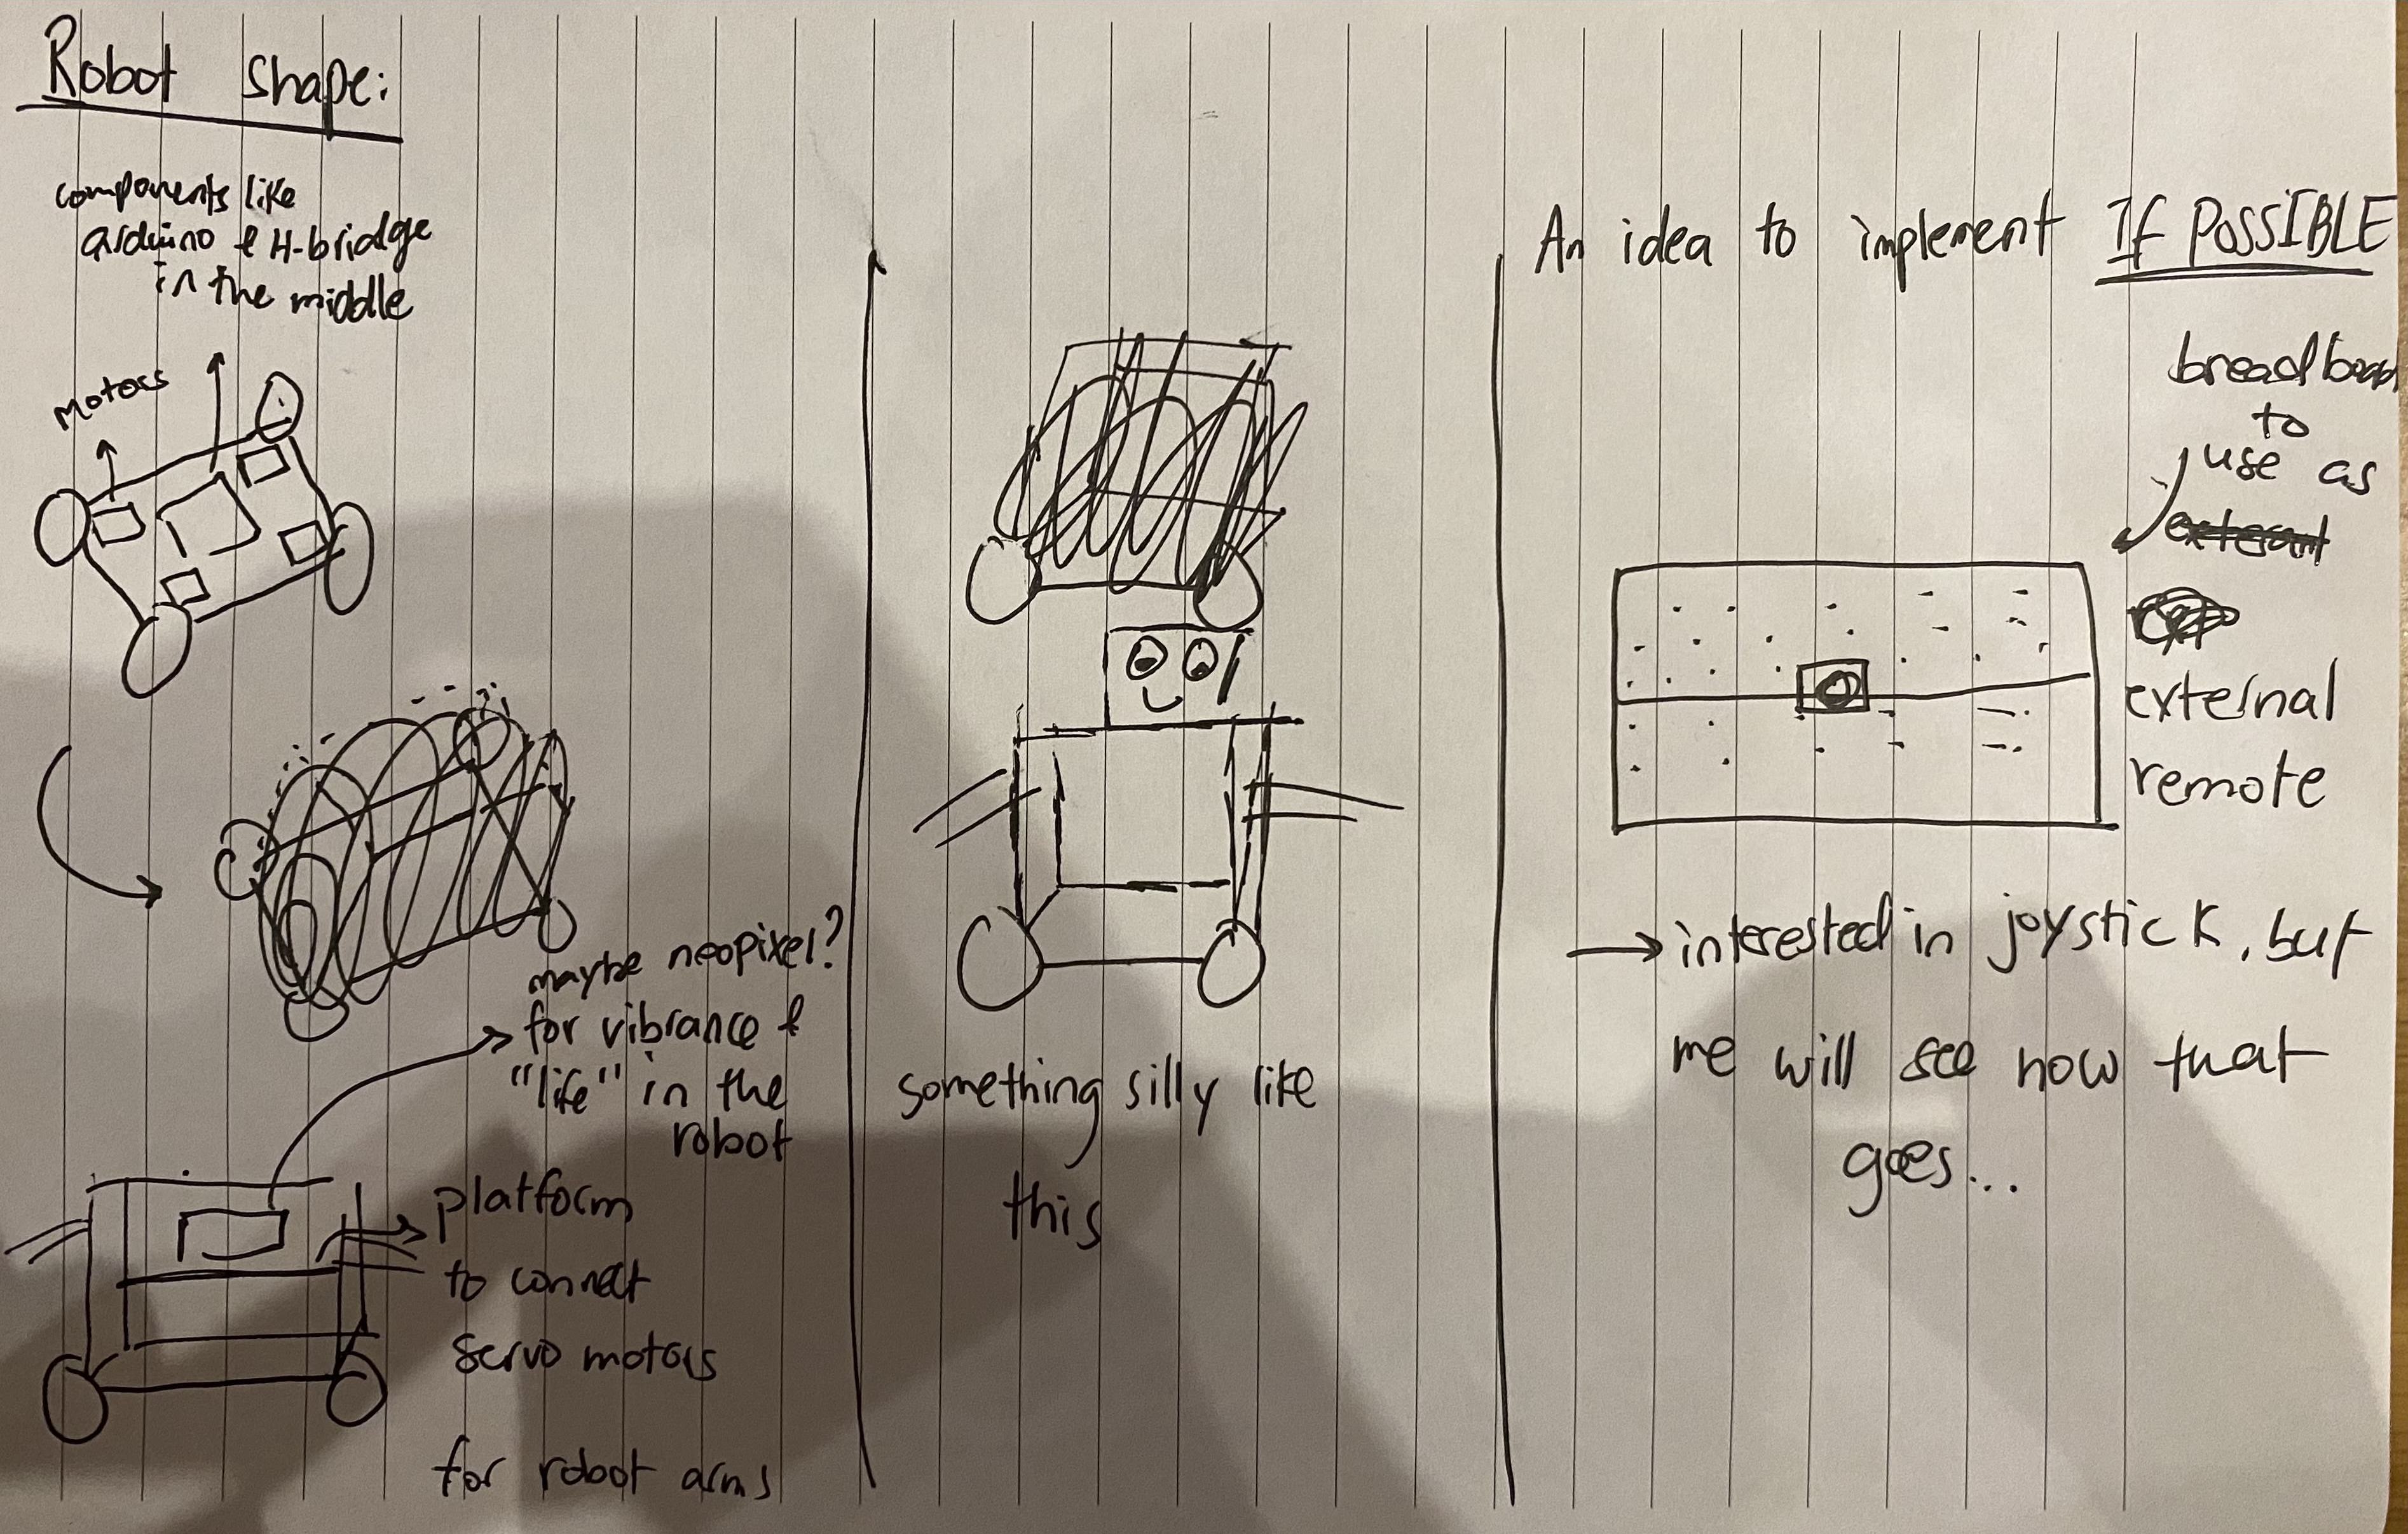 Robot shape:
components like
arduino & H-bridge
in the middle
Motors
maybe neopixel?
for vibrance &
"life" in the
robot
platform
to connect
servo motors
for robot arms
something silly like
this
An idea to implement IF POSSIBLE
breadboard
to
use as
external
remote
→ interested in joystick, but
me will see how that
goes...